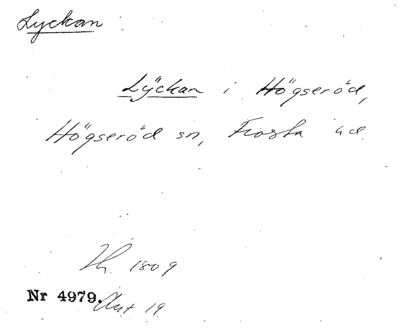 Lyckan
Lÿckan i Högseröd,
Högseröd sn, Frosta hd.
1809
Nr 4979. Akt 19